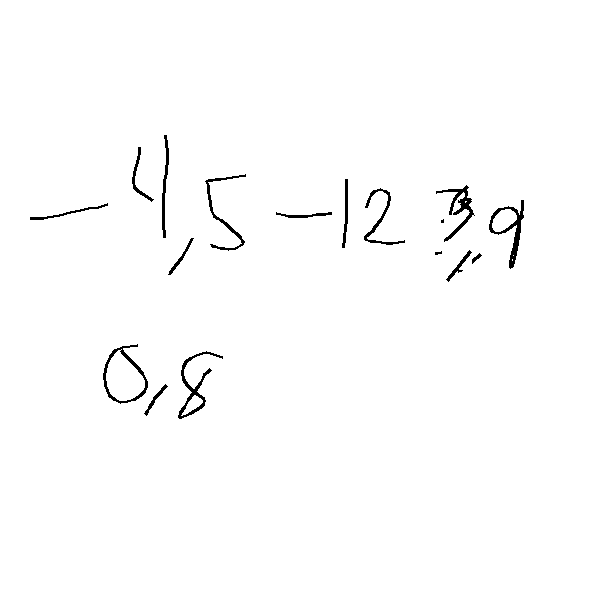 -4,5 -12 3,9
0,8